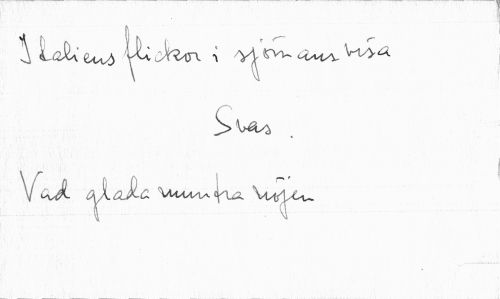 Italiens flickor i sjömansvisa
Svas.
Vad glada muntra nöjen